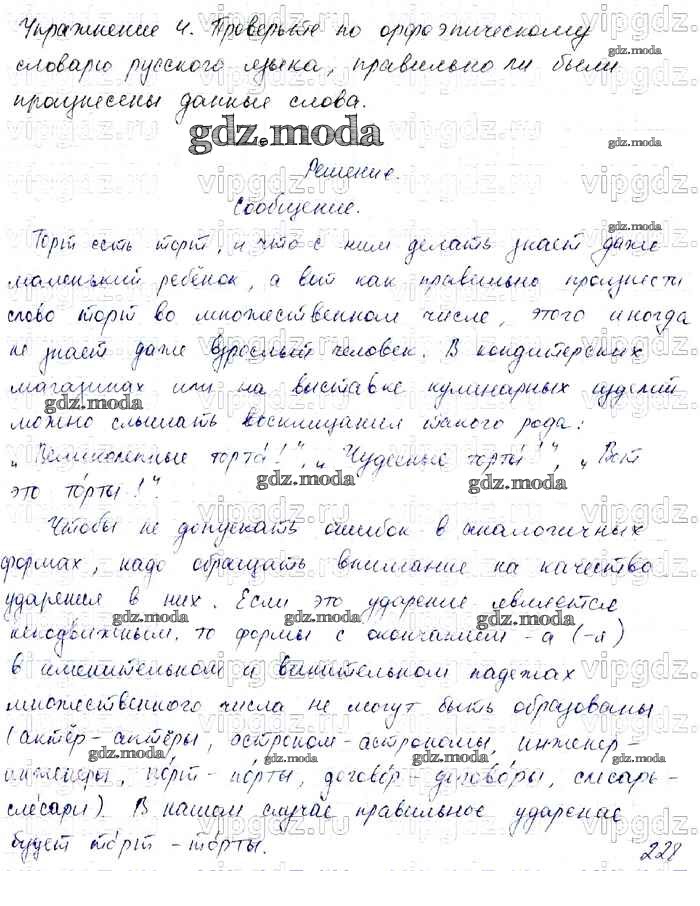 Упражнение 4. Проверьте по орфоэпическому
словарю русского языка, правильно ли были
произнесены данные слова.
gdz.moda
Решение.
Сообщение.
Торт есть торт, и что с ним делать знает даже
маленький ребёнок, а вот как правильно произнести
слово торт во множественном числе, этого иногда
не знает даже взрослый человек. В кондитерских
магазинах или на выставке кулинарных изделий
можно слышать восклицания такого рода:
„Великолепные торта́!", „Чудесные торты́!", „Вот
это то́рты!".
Чтобы не допускать ошибок в аналогичных
формах, надо обращать внимание на качество
ударения в них. Если это ударение является
неподвижным, то формы с окончанием -а (-я)
в именительном и винительном падежах
множественного числа не могут быть образованы
(актёр - актёры, астроном - астрономы, инженер -
инженеры, по́рт - порты, догово́р - догово́ры, слесарь -
слесари). В нашем случае правильное ударение
будет то́рт - то́рты.
228